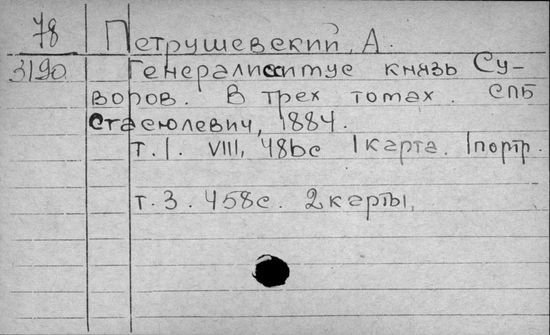 78
Петрушевский, А.
3190
Генералиссимус князь Су-
воров. В трех томах. СПБ
Стасюлевич, 1884.
т. 1. VIII, 486с 1 карта. 1 портр.
т. 3. 458с. 2 карты,